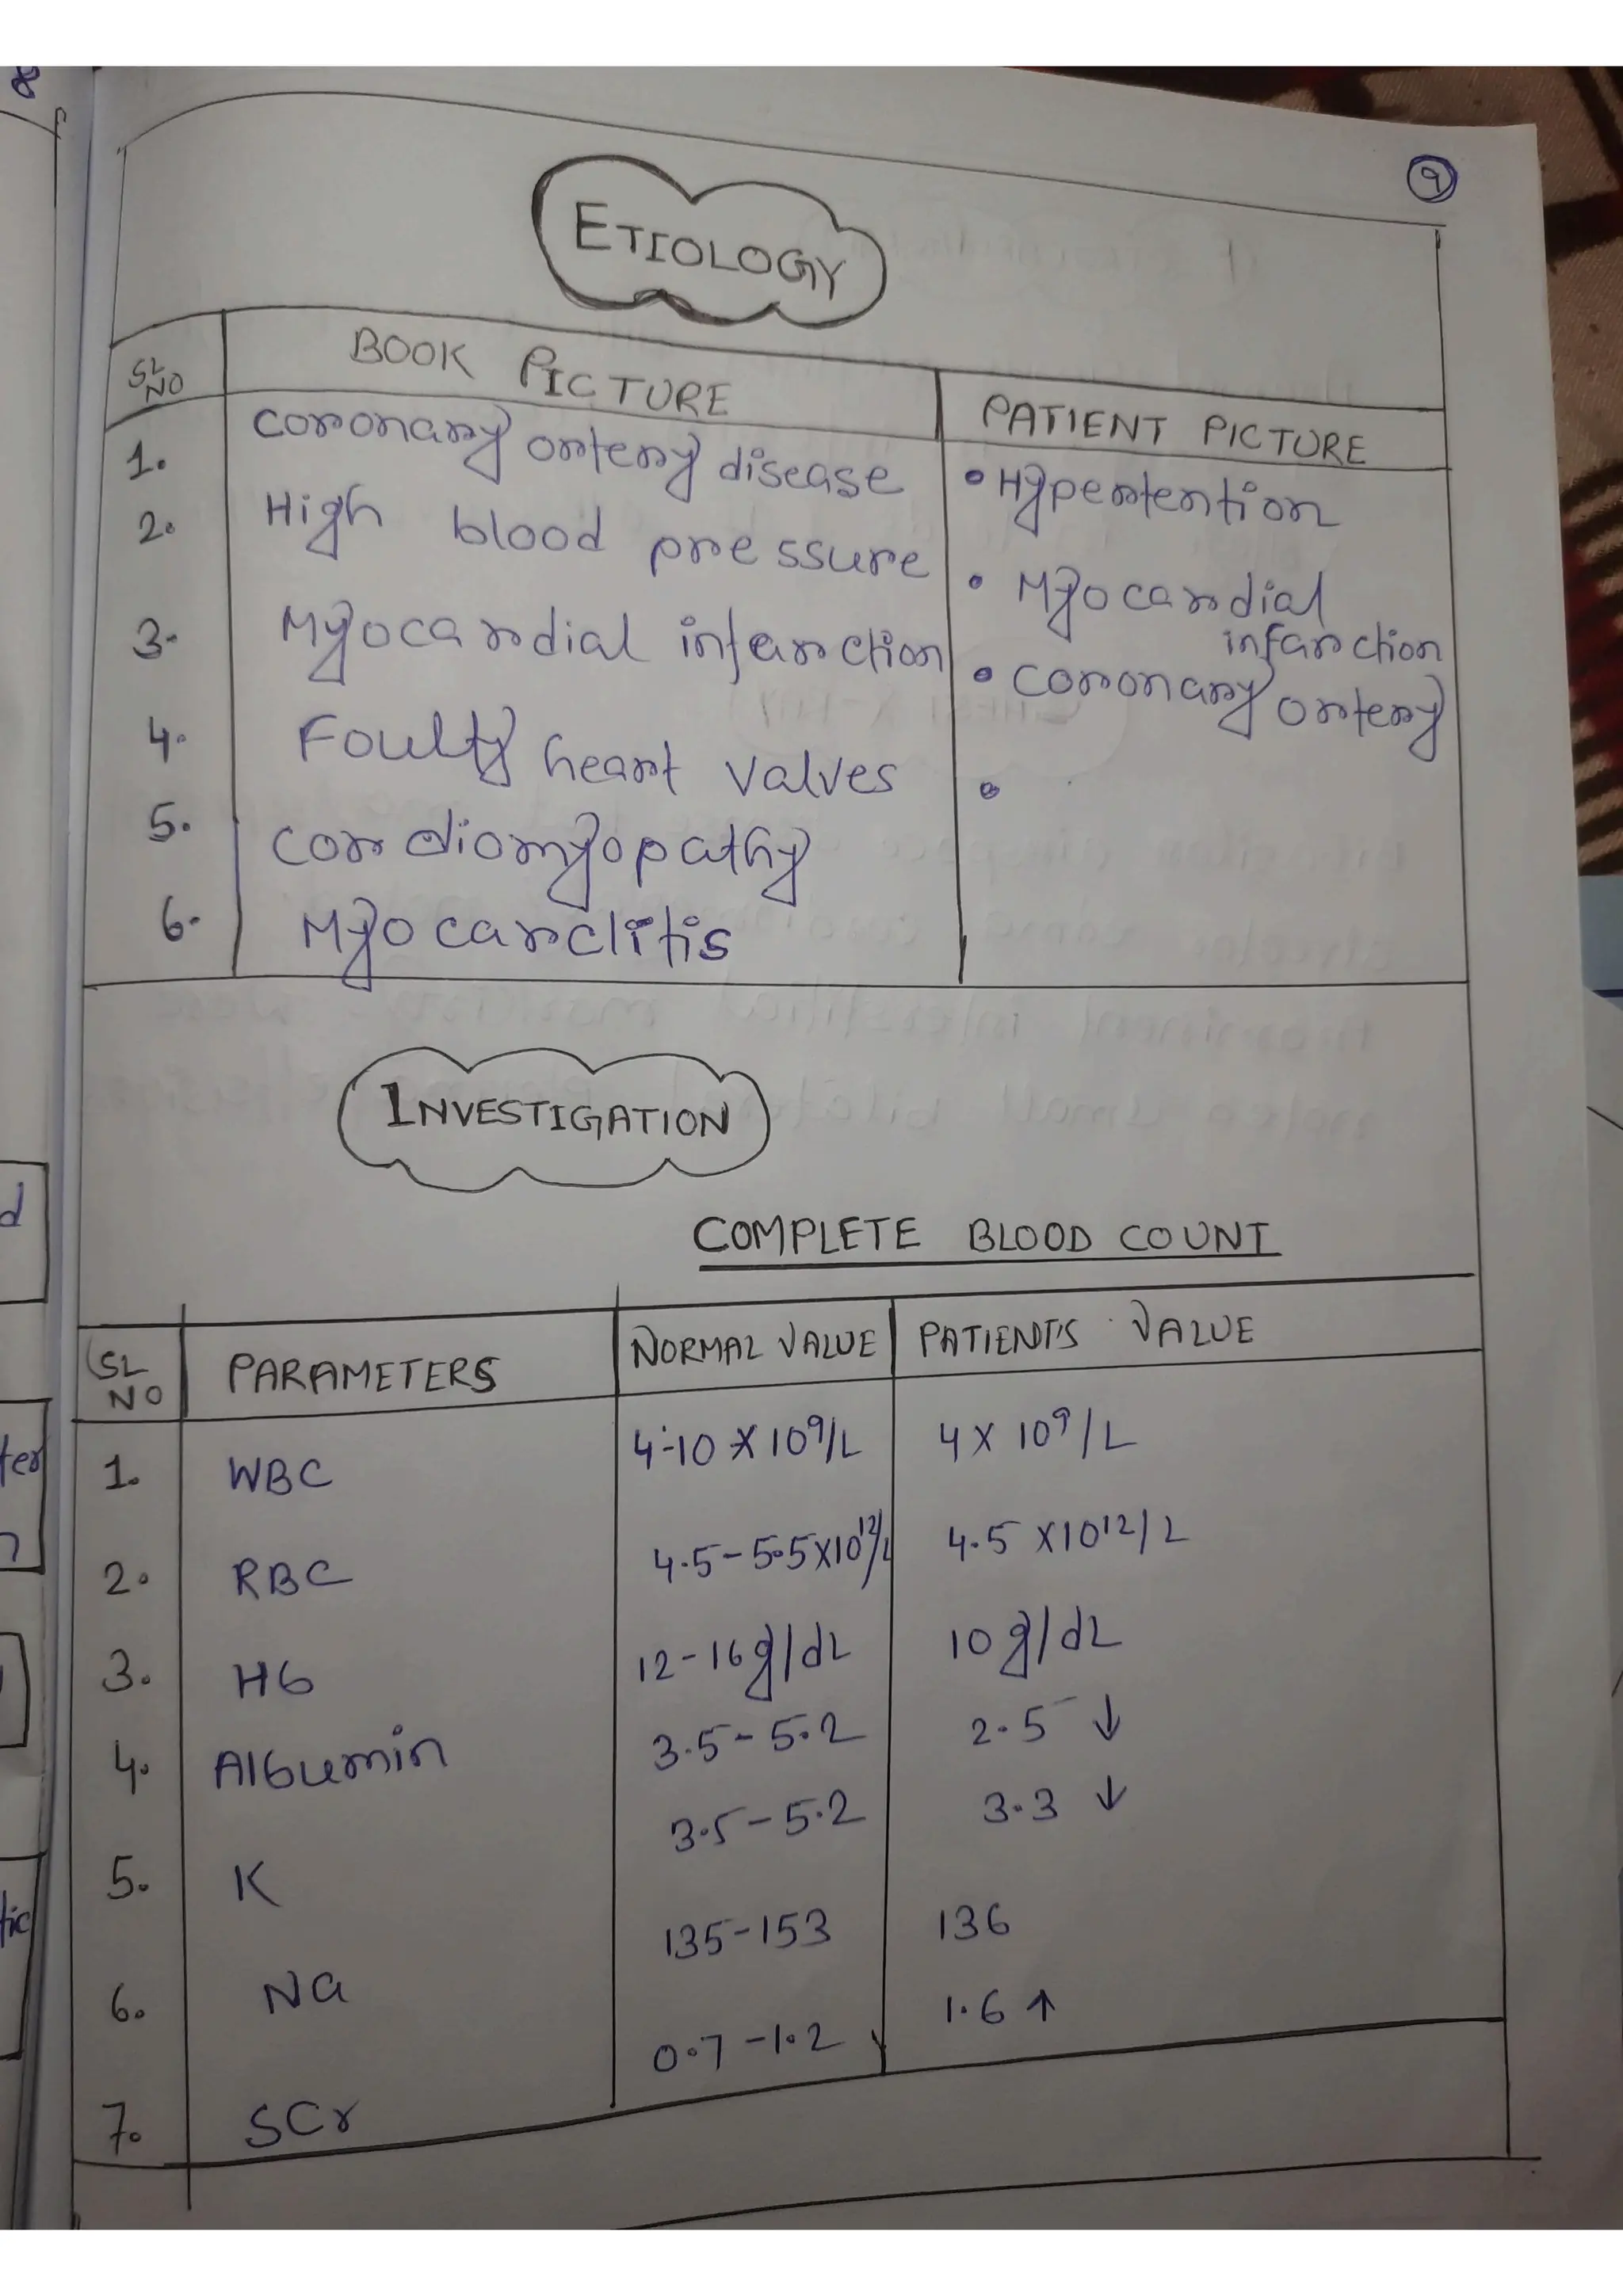 8
9
ETIOLOGY
SL NO BOOK PICTURE PATIENT PICTURE
1. Coronary ortery disease • Hypertention
2. High blood pressure • Myocardial
infarction
3. Myocardial infarction • Coronary ortery
4. Foulty heart valves •
5. Cordiomyopathy
6. Myocarditis
INVESTIGATION
COMPLETE BLOOD COUNT
SL NO PARAMETERS NORMAL VALUE PATIENT'S VALUE
1. WBC 4-10 X 10⁹/L 4 X 10⁹/L
2. RBC 4.5-5.5X10¹²/L 4.5 X10¹²/L
3. Hb 12-16g/dL 10g/dL
4. Albumin 3.5-5.2 2.5 ↓
5. K 3.5-5.2 3.3 ↓
6. Na 135-153 136
7. SCr 0.7-1.2 1.6 ↑